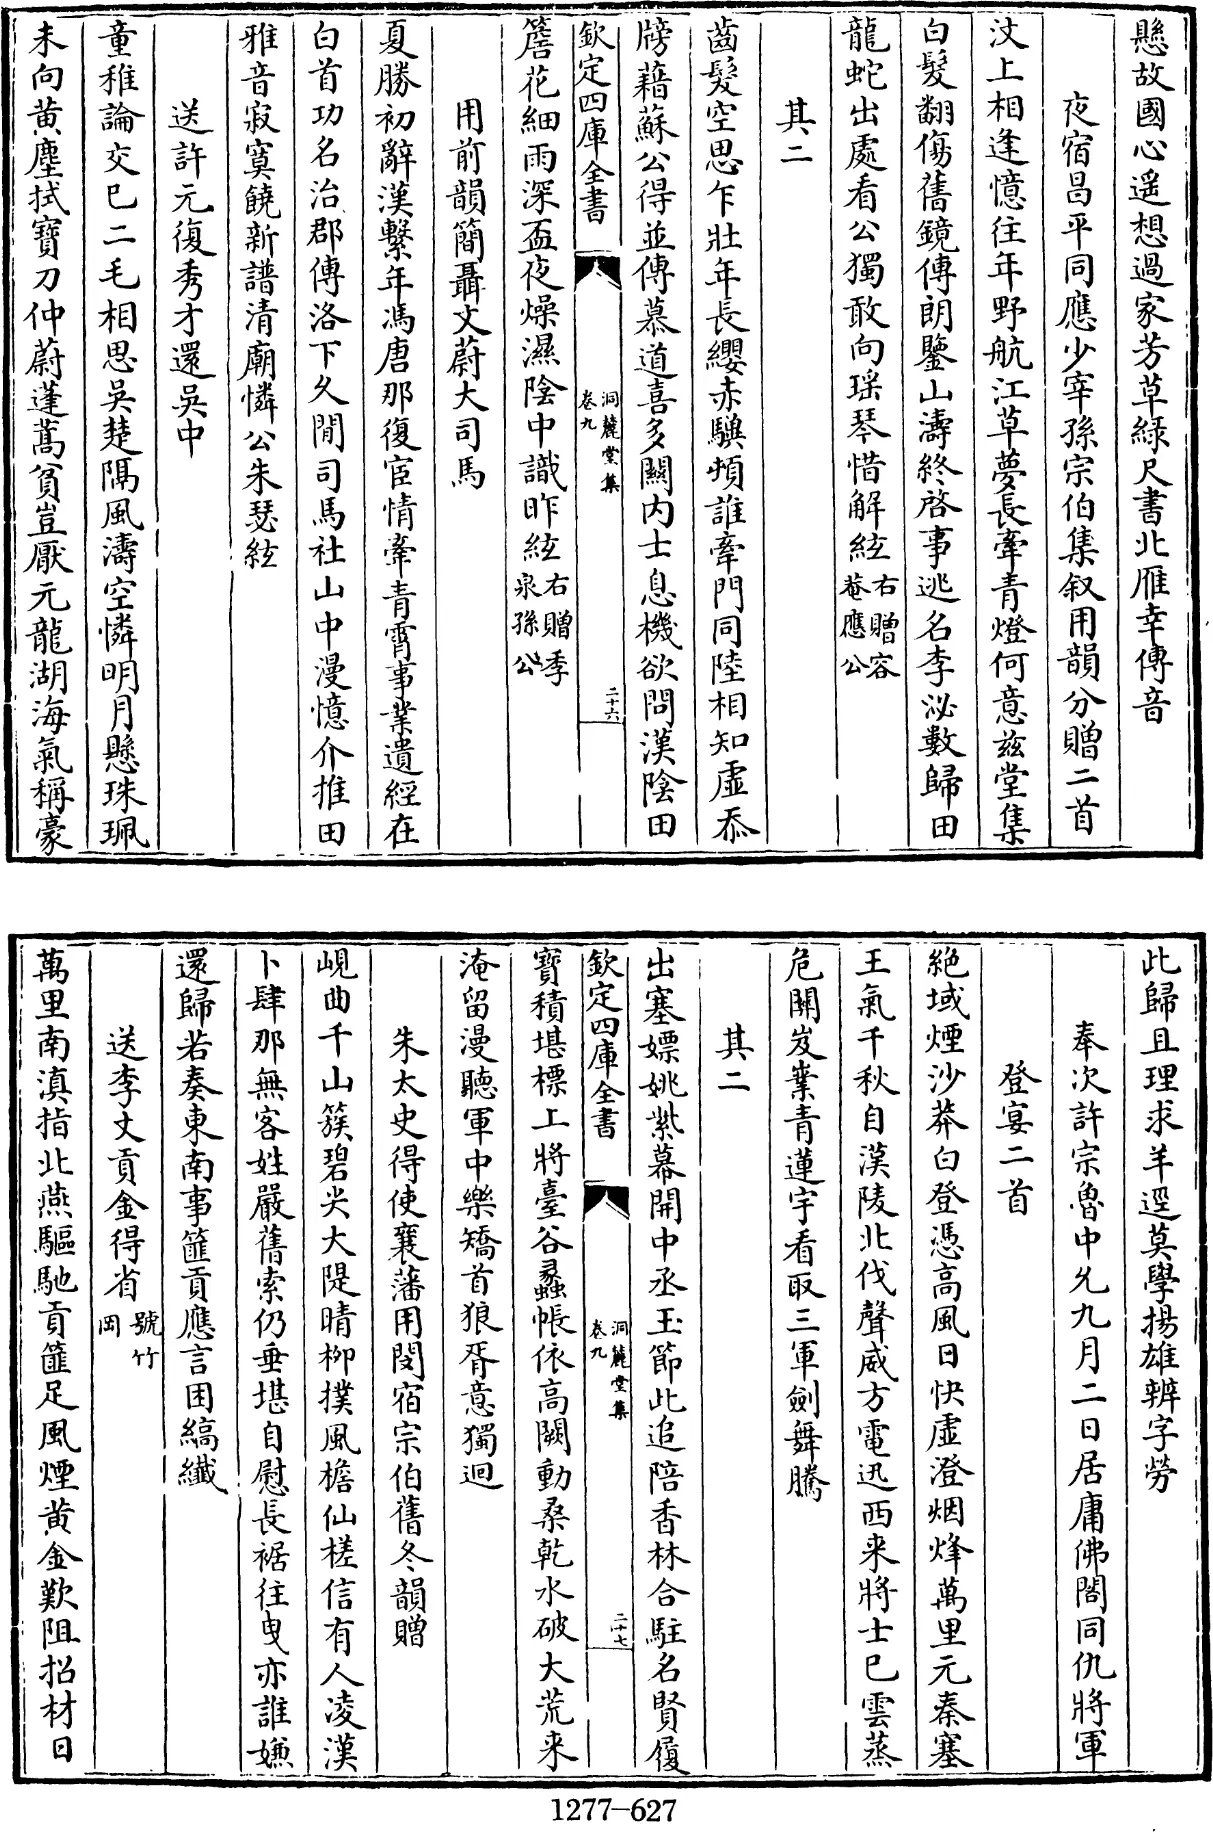 懸故國心遥想過家芳草緑尺書北雁幸傳音
夜宿昌平同應少宰孫宗伯集叙用韻分贈二首
汶上相逢憶往年野航江草夢長牽青燈何意兹堂集
白髮翻傷舊鏡傳朗鑒山濤終啓事逃名李泌數歸田
龍蛇出處看公獨敢向瑶琴惜解絃右贈容
菴應公
其二
齒髮空思乍壯年長纓赤驥頓誰牽門同陸相知虚忝
牓藉蘇公得並傳慕道喜多關内士息機欲問漢陰田
欽定四庫全書
洞麓堂集
卷九
二十六
簷花細雨深盃夜燥濕陰中識昨絃右贈季
泉孫公
用前韻簡聶文蔚大司馬
夏勝初辭漢繫年馮唐那復宦情牽青霄事業遺經在
白首功名治郡傳洛下久閒司馬社山中漫憶介推田
雅音寂寞饒新譜清廟憐公朱瑟絃
送許元復秀才還吳中
童稚論交已二毛相思吳楚隔風濤空憐明月懸珠珮
未向黄塵拭寶刀仲蔚蓬蒿貧豈厭元龍湖海氣稱豪
此歸且理求羊逕莫學揚雄辨字勞
奉次許宗魯中允九月二日居庸佛閣同仇將軍
登宴二首
絶域煙沙莽白登憑高風日快虚澄烟烽萬里元秦塞
王氣千秋自漢陵北伐聲威方電迅西来將士已雲蒸
危關岌嶪青蓮宇看取三軍劍舞騰
其二
出塞嫖姚紫幕開中丞玉節此追陪香林合駐名賢履
寶積堪標上將臺谷蠡帳依高闕動桑乾水破大荒来
欽定四庫全書
洞麓堂集
卷九
二十七
淹留漫聽軍中樂矯首狼胥意獨迴
朱太史得使襄藩用閔宿宗伯舊冬韻贈
峴曲千山簇碧尖大隄晴柳撲風檐仙槎信有人凌漢
卜肆那無客姓嚴舊索仍垂堪自慰長裾往曳亦誰嫌
還歸若奏東南事篚貢應言困縞纖
送李丈貢金得省號竹
岡
萬里南滇指北燕驅馳貢篚足風煙黄金歎阻招材日
1277—627